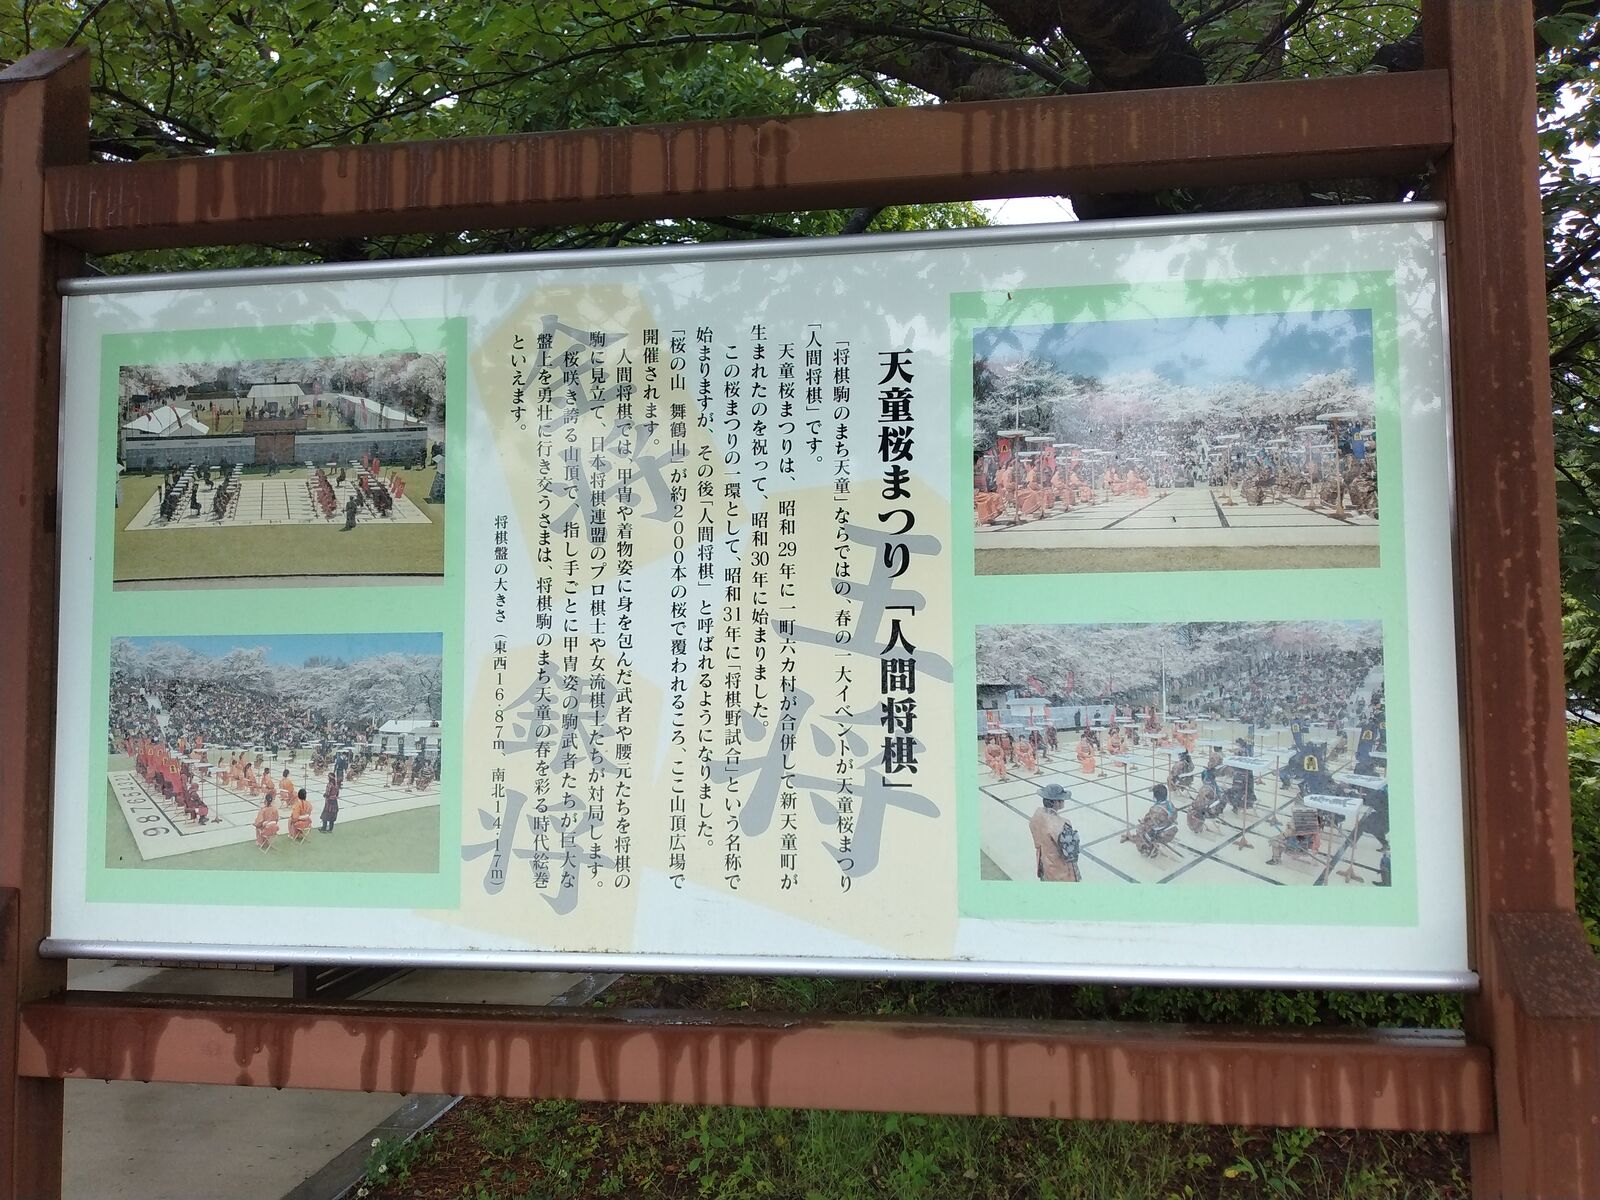 天童桜まつり「人間将棋」
「将棋駒のまち天童」ならではの、春の一大イベントが天童桜まつり
「人間将棋」です。
天童桜まつりは、昭和29年に一町六カ村が合併して新天童町が
生まれたのを祝って、昭和30年に始まりました。
この桜まつりの一環として、昭和31年に「将棋野試合」という名称で
始まりますが、その後「人間将棋」と呼ばれるようになりました。
「桜の山 舞鶴山」が約2000本の桜で覆われるころ、ここ山頂広場で
開催されます。
人間将棋では、甲冑や着物姿に身を包んだ武者や腰元たちを将棋の
駒に見立て、日本将棋連盟のプロ棋士や女流棋士たちが対局します。
桜咲き誇る山頂で、指し手ごとに甲冑姿の駒武者たちが巨大な
盤上を勇壮に行き交うさまは、将棋駒のまち天童の春を彩る時代絵巻
といえます。
将棋盤の大きさ（東西16.87m 南北14.17m）
王将
金将
銀将